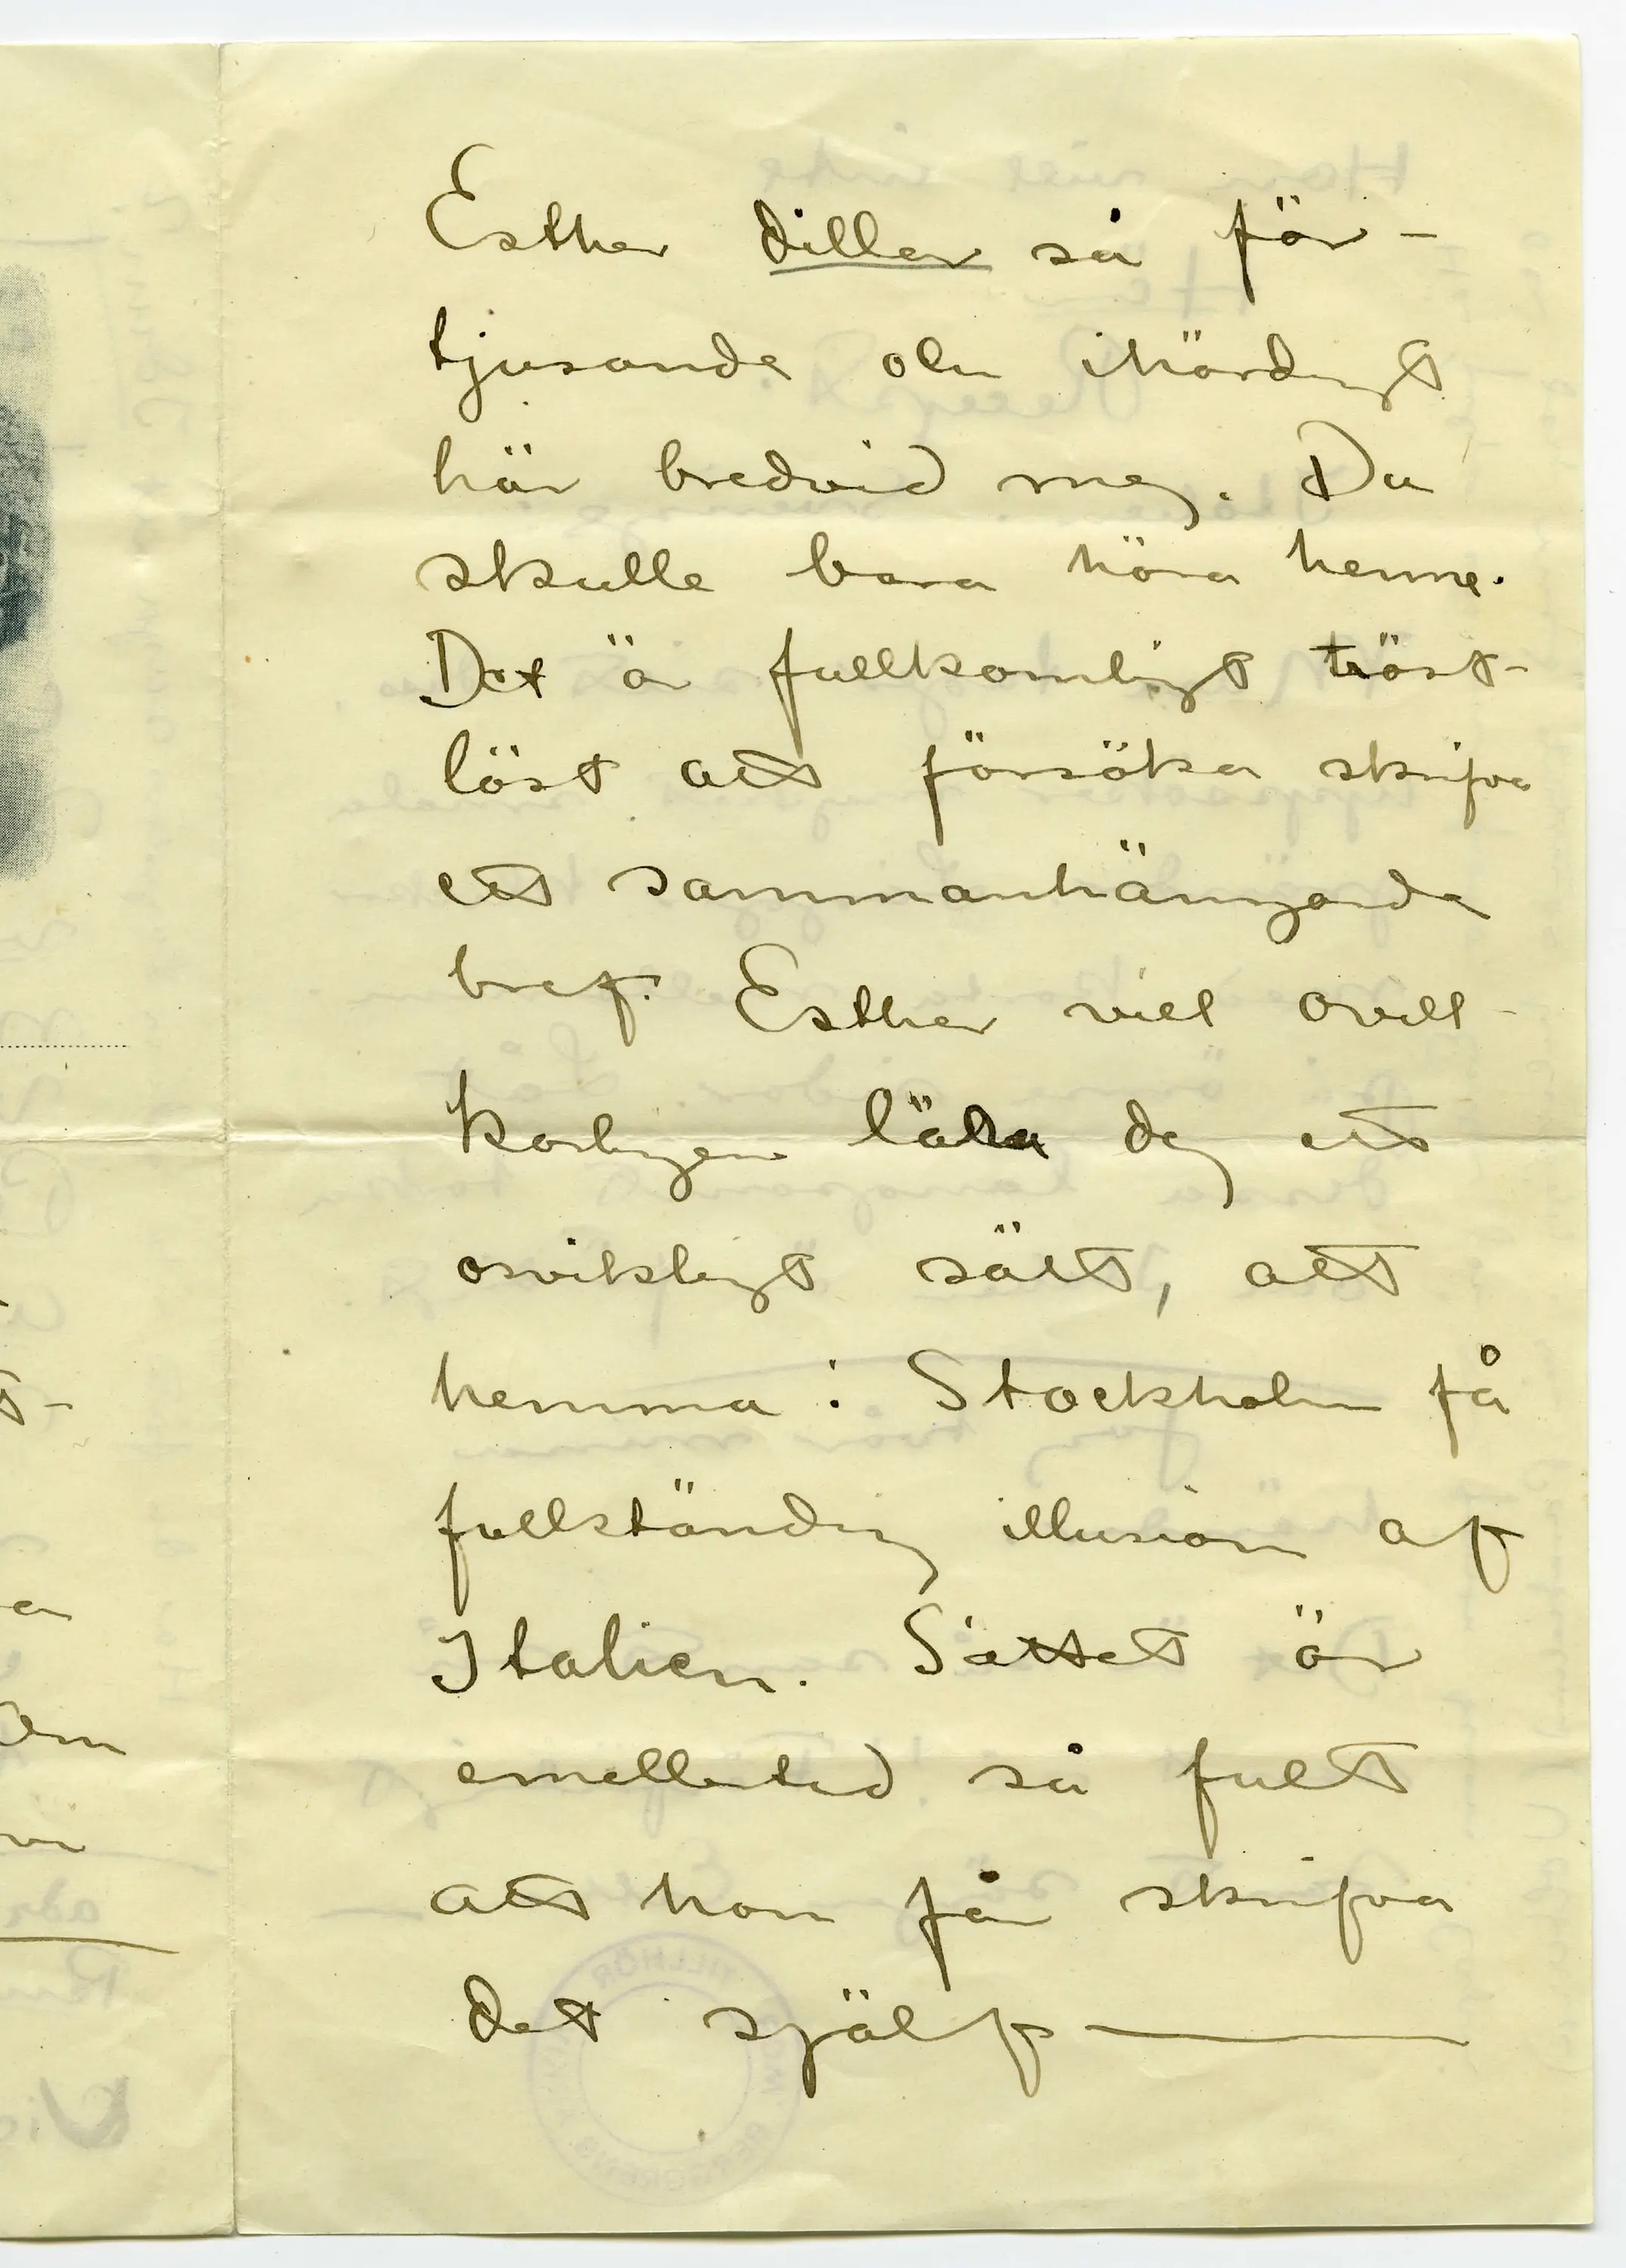 Esther dillar så för-
tjusande och ihärdigt
här bredvid mig. Du
skulle bara höra henne.
Det är fullkomligt tröst-
löst att försöka skrifva
ett sammanhängande
bref. Esther vill ovill-
korligen lära dig ett
osvikligt sätt, att
hemma i Stockholm få
fullständig illusion af
Italien. Sättet är
emellertid så fult
att hon får skrifva
det själf